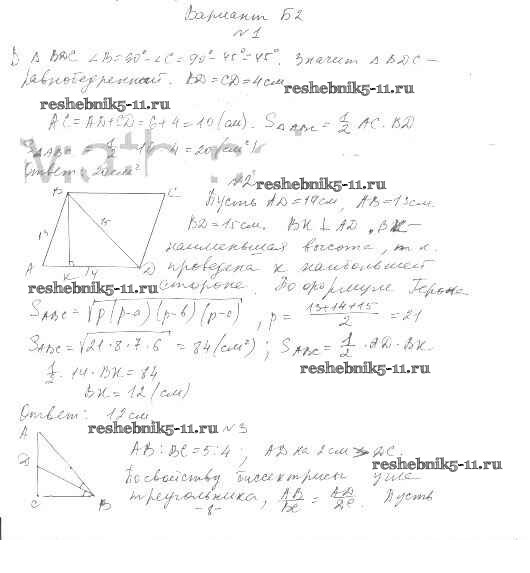 Вариант Б2
№1
В Δ BDC ∠B=90°-∠C=90°-45°=45°. Значит Δ BDC –
равнобедренный. BD=CD=4см
reshebnik5-11.ru
reshebnik5-11.ru
AC=AD+CD=6+4=10(см). S ΔABC = 1/2 AC·BD
S ΔABC = 1/2 · 10 · 4=20(см²)
Ответ: 20см²
№2
reshebnik5-11.ru
B C
Пусть AD=14см, AB=13см
13 15
BD=15см. BK⊥AD, BK–
наименьшая высота, т.к.
A K 14 D
проведена к наибольшей
reshebnik5-11.ru
стороне. По формуле Герона
S ABC = √p(p-a)(p-b)(p-c), p = 13+14+15 / 2 = 21
S ABC = √21·8·7·6 = 84(см²); S ABC = 1/2 · AD · BK
reshebnik5-11.ru
1/2 · 14 · BK = 84
BK = 12(см)
Ответ: 12см
reshebnik5-11.ru
№3
A
AB:BC=5:4; AD на 2см > DC.
reshebnik5-11.ru
D
По свойству биссектрисы угла
треугольника, AB/BC = AD/DC. Пусть
C B
-8-